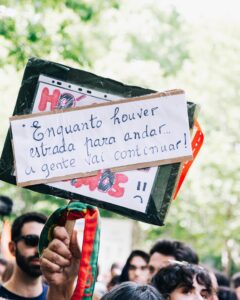 HO
"Enquanto houver
estrada para andar...
a gente vai continuar!"
MOS